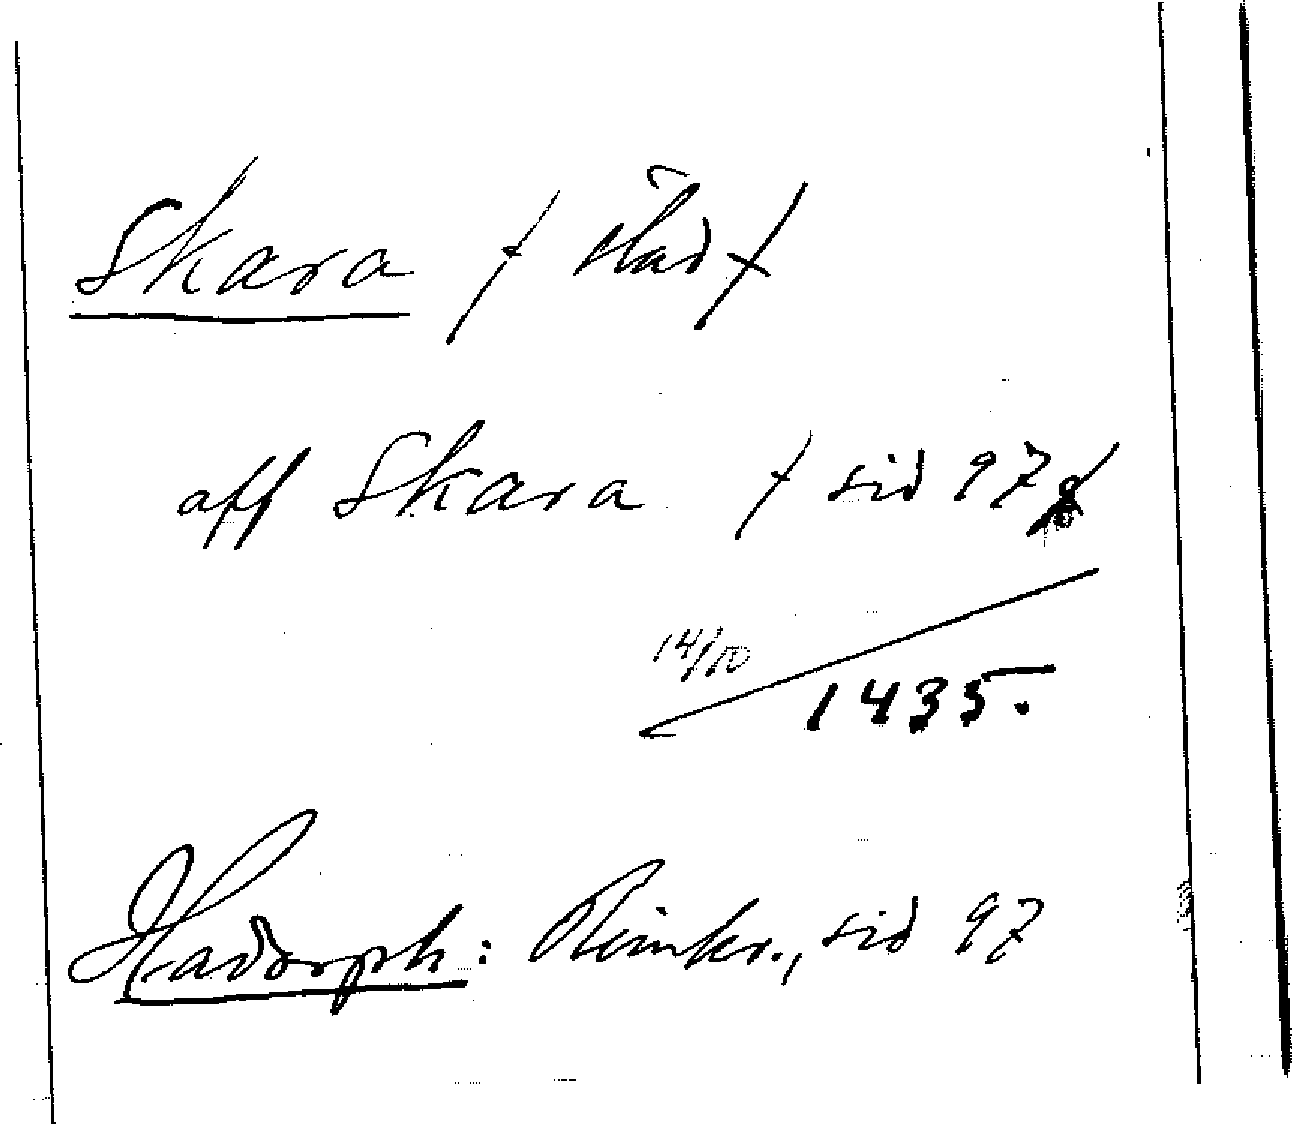 Skara / stad /
aff Skara / sid 97 /
14/10 1435.
Hadorph: Rimkr., sid 97